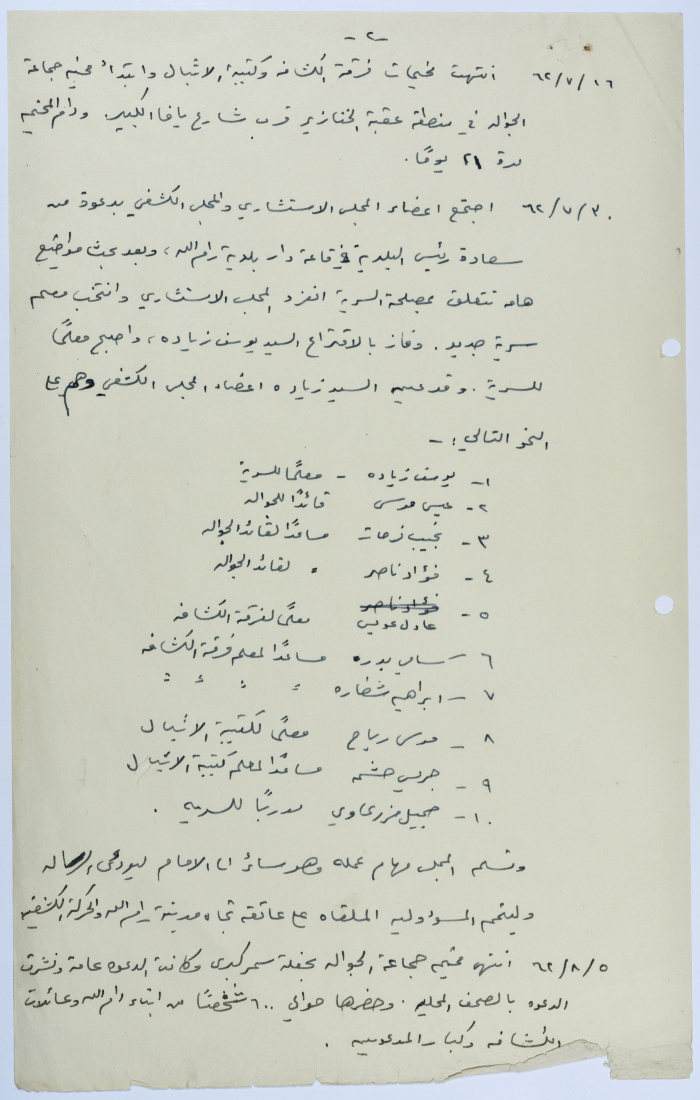 -٢-
٦٢/٧/١٦ انتهت مخيمات فرقة الكشافه وكتيبة الاشبال وابتدأ مخيم جماعة
الجواله في منطقة عقبة الخنازير قرب شارع يافا الكبير. ودام المخيم
مدة ٢١ يومًا.
٦٢/٧/٣٠ اجتمع اعضاء المجلس الاستشاري والمجلس الكشفي بدعوة من
سعادة رئيس البلدية في قاعة دار بلدية رام الله، وبعد بحث مواضيع
هامه تتعلق بمصلحة السرية انفرد المجلس الاستشاري وانتخب معلم
سرية جديد. وفاز بالاقتراع السيد يوسف زياده، واصبح معلمًا
للسرية. وقد عين السيد زياده اعضاء المجلس الكشفي وهم على
النحو التالي:-
١- يوسف زياده - معلمًا للسرية
٢- عيسى موسى قائدًا للجواله
٣- نجيب فرحات مساعدًا لقائد الجواله
٤- فؤاد ناصر " لقائد الجواله
٥- فؤاد ناصر
عادل عويس معلمًا لفرقة الكشافه
٦- سامي بدره مساعدًا لمعلم فرقة الكشافه
٧- ابراهيم شطاره " " " "
٨- موسى رباح معلمًا لكتيبة الاشبال
٩- جريس حشمه مساعدًا لمعلم كتيبة الاشبال
١٠- جميل مزرعاوي مدربًا للسريه.
وتسلم المجلس مهام عمله وهو سائر الى الامام ليؤدي الرساله
وليتمم المسؤوليه الملقاه على عاتقه تجاه مدينة رام الله والحركة الكشفيه
٦٢/٨/٥ انتهى مخيم جماعة الجواله بحفلة سمر كبرى وكانت الدعوه عامة ونشرت
الدعوه بالصحف المحليه. وحضرها حوالي ٦٠٠ شخصًا من ابناء رام الله وعائلات
الكشافه وكبار المدعويين.